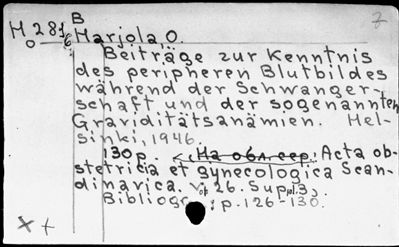 B
H 281
06
Harjola, O.
Beiträge zur Kenntnis
des peripheren Blutbildes
während der Schwanger-
schaft und der sogenannten
Graviditätsanämien. Hel-
sinki, 1946.
130p. (На обл. сер.: Acta ob-
stetricia et gynecologica Scan-
dinavica. Vol. 26. Suppl. 3).
Bibliogr.: p. 126-130.